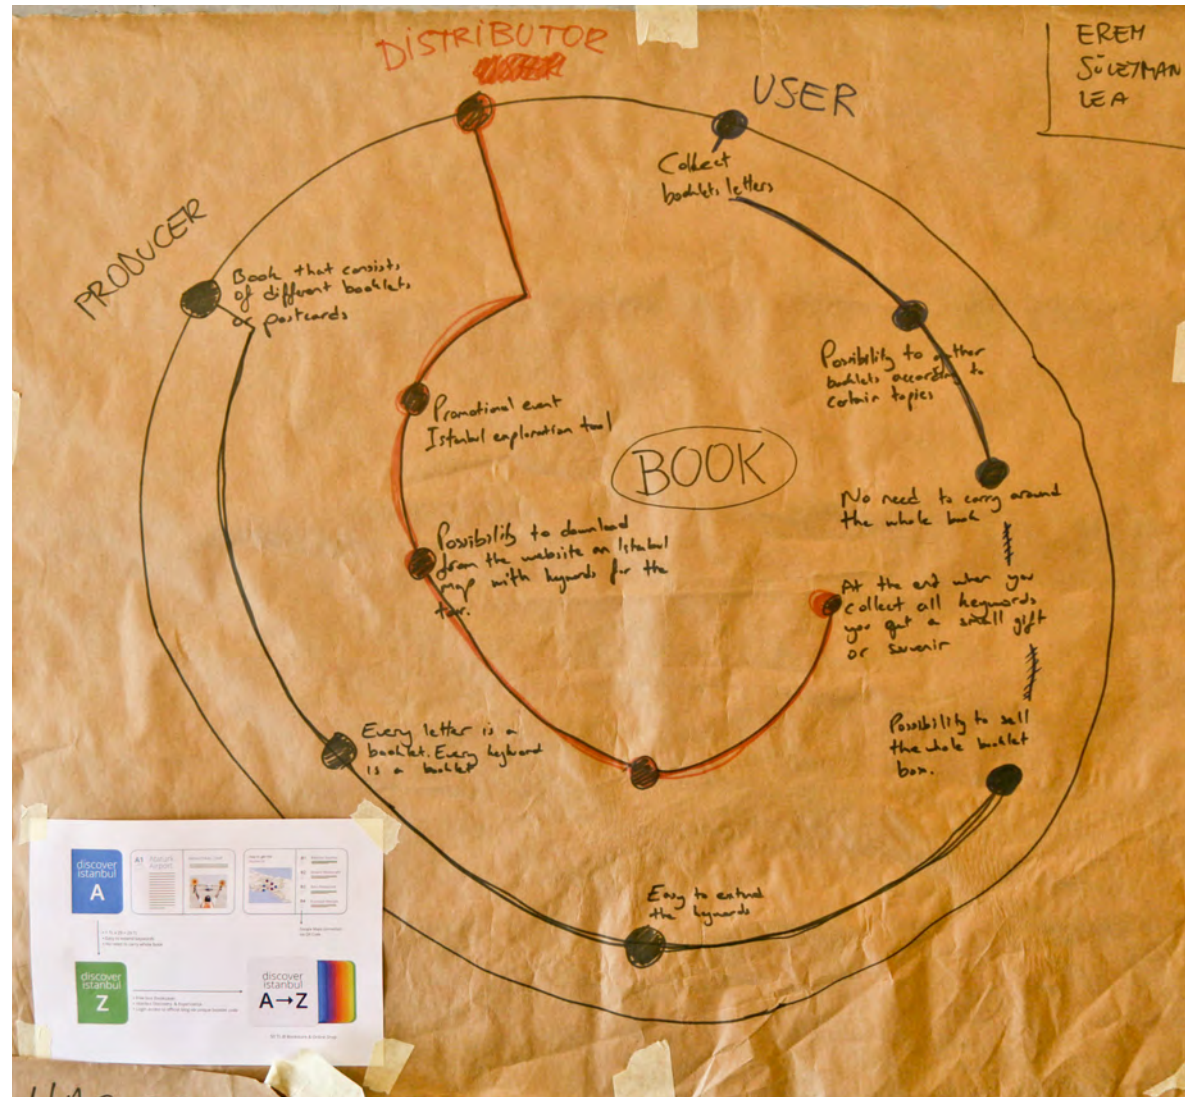 DISTRIBUTOR
USER
EREM
SÜLEYMAN
LEA
PRODUCER
Collect
booklets letters
Book that consists
of different booklets
or postcards
Possibility to gather
booklets according to
certain topics
Promotional event
Istanbul exploration tool
BOOK
No need to carry around
the whole book
Possibility to download
from the website an Istanbul
map with keywords for the
tour.
At the end when you
collect all keywords
you get a small gift
or suvenir
Every letter is a
booklet. Every keyword
is a booklet
Possibility to sell
the whole booklet
box.
Easy to extend
the keywords
discover
istanbul
A
A1
Atatürk
Airport
discover
istanbul
Z
discover
istanbul
A→Z